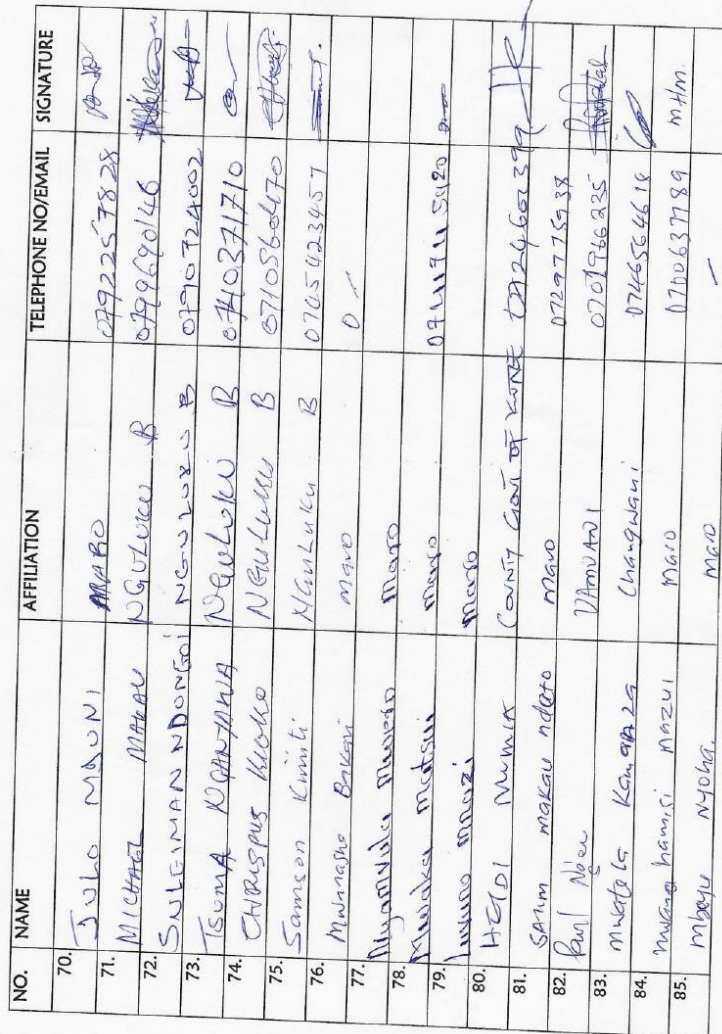 NO. NAME AFFILIATION TELEPHONE NO/EMAIL SIGNATURE
70. JULO MARO 0792257828
71. MICHAEL MAKAU NGULUKU B 0799690146
72. SULEIMAN NDONGOI NGULUKU B 0790724002
73. TSUMA NGANYAWA NGULUKU B 0710371710
74. CHRISPUS KIOKO NGULUKU B 0710560470
75. Samson Kimiti NGULUKU B 0745423457
76. Mwanasha Bakari maro 0 -
77. maro
78. Mwaka maro
79. maro
80. HEIDI MUMIA COUNTY GOVT OF KWALE
81. SALIM makau ndoto maro 0729775938
82. Paul VAMUANI 0701966235
83. mwatela Changwani 0746564614
84. hamisi mazui maro 0700637789 m.Hm.
85. mbeyu nyoha. maro -